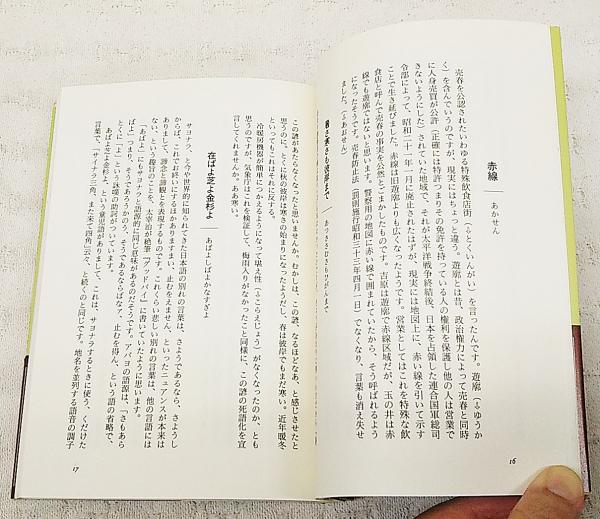 赤線 —— あかせん
売春を公認されたいわゆる特殊飲食店街(ふとくいんがい)を言ったんです。遊廓(ふゆうか
く)を含んでいうのですが、現実にはちょっと違う。遊廓とは昔、政治権力によって売春と同時
に人身売買が公許(正確には特許つまりその免許を持っている人の権利を保護し他の人は営業で
きないようにした)されていた地域で、それが太平洋戦争終結後、日本を占領した連合国軍総司
令部によって、昭和二十一年一月に廃止されたはずが、現実には地図上に、赤い線を引いて示す
ことで生き延びました。赤線は旧遊廓よりも広くなったようです。営業としてはこれを特殊な飲
食店と呼んで売春の事実を公然とごまかしたものです。吉原は遊廓で赤線区域だが、玉の井は赤
線でも遊廓ではないと思います。警察用の地図に赤い線で囲まれていたから、そう呼ばれるよう
になったそうです。売春防止法(罰則施行昭和三十三年四月一日)でなくなり、言葉も消え失せ
ました。(ふあおせん)
暑さ寒さも彼岸まで —— あつささむさもひがんまで
16
この諺があたらなくなったと思いませんか。むかしは、この諺、なるほどなあ、と感じさせたと
思うのに、とくに秋の彼岸は寒さの始まりになったようだし、春は彼岸でもまだ寒い。近年暖冬
といってもこれはそれに反する。
冷暖房機器が簡単につかえるようになって堪え性(ふこらえじょう)がなくなったのか、とも
思うのですが、気象庁はこれを検証して、梅雨入りがなかったこと同様に、この諺の死語化を宣
言してくれませんか。ああ寒い。
在ばよ芝よ金杉よ —— あばよしばよかなすぎよ
サヨナラ、と今や世界的に知られてきた日本語の別れの言葉は、さようであるなら、さようし
からば、これでお終いにするほかありますまい、止むをえません、といったニュアンスが本来は
ありまして、諦念と諦観とを表現するものです。これくらい悲しい別れの言葉は、他の言語には
ない、という趣旨のことを、太宰治が絶筆『グッドバイ』に書いていたように思います。
「あばよ」にもサヨナラと語源的に同じ意味があるのだそうです。アバヨの語源は、「さもあら
ばよ」つまり、そうであるのかのう、そうであるならばなァ、止むを得ん、という語の省略で、
とくに「よ」という詠嘆の助詞がついています。
あばよ芝よ金杉よ、という童児語がありまして、これは、サヨナラするときに使う、くだけた
言葉で、「サイナラ三角、また来て四角」云々、と続くのと同じです。地名を並列する語音の調子
17